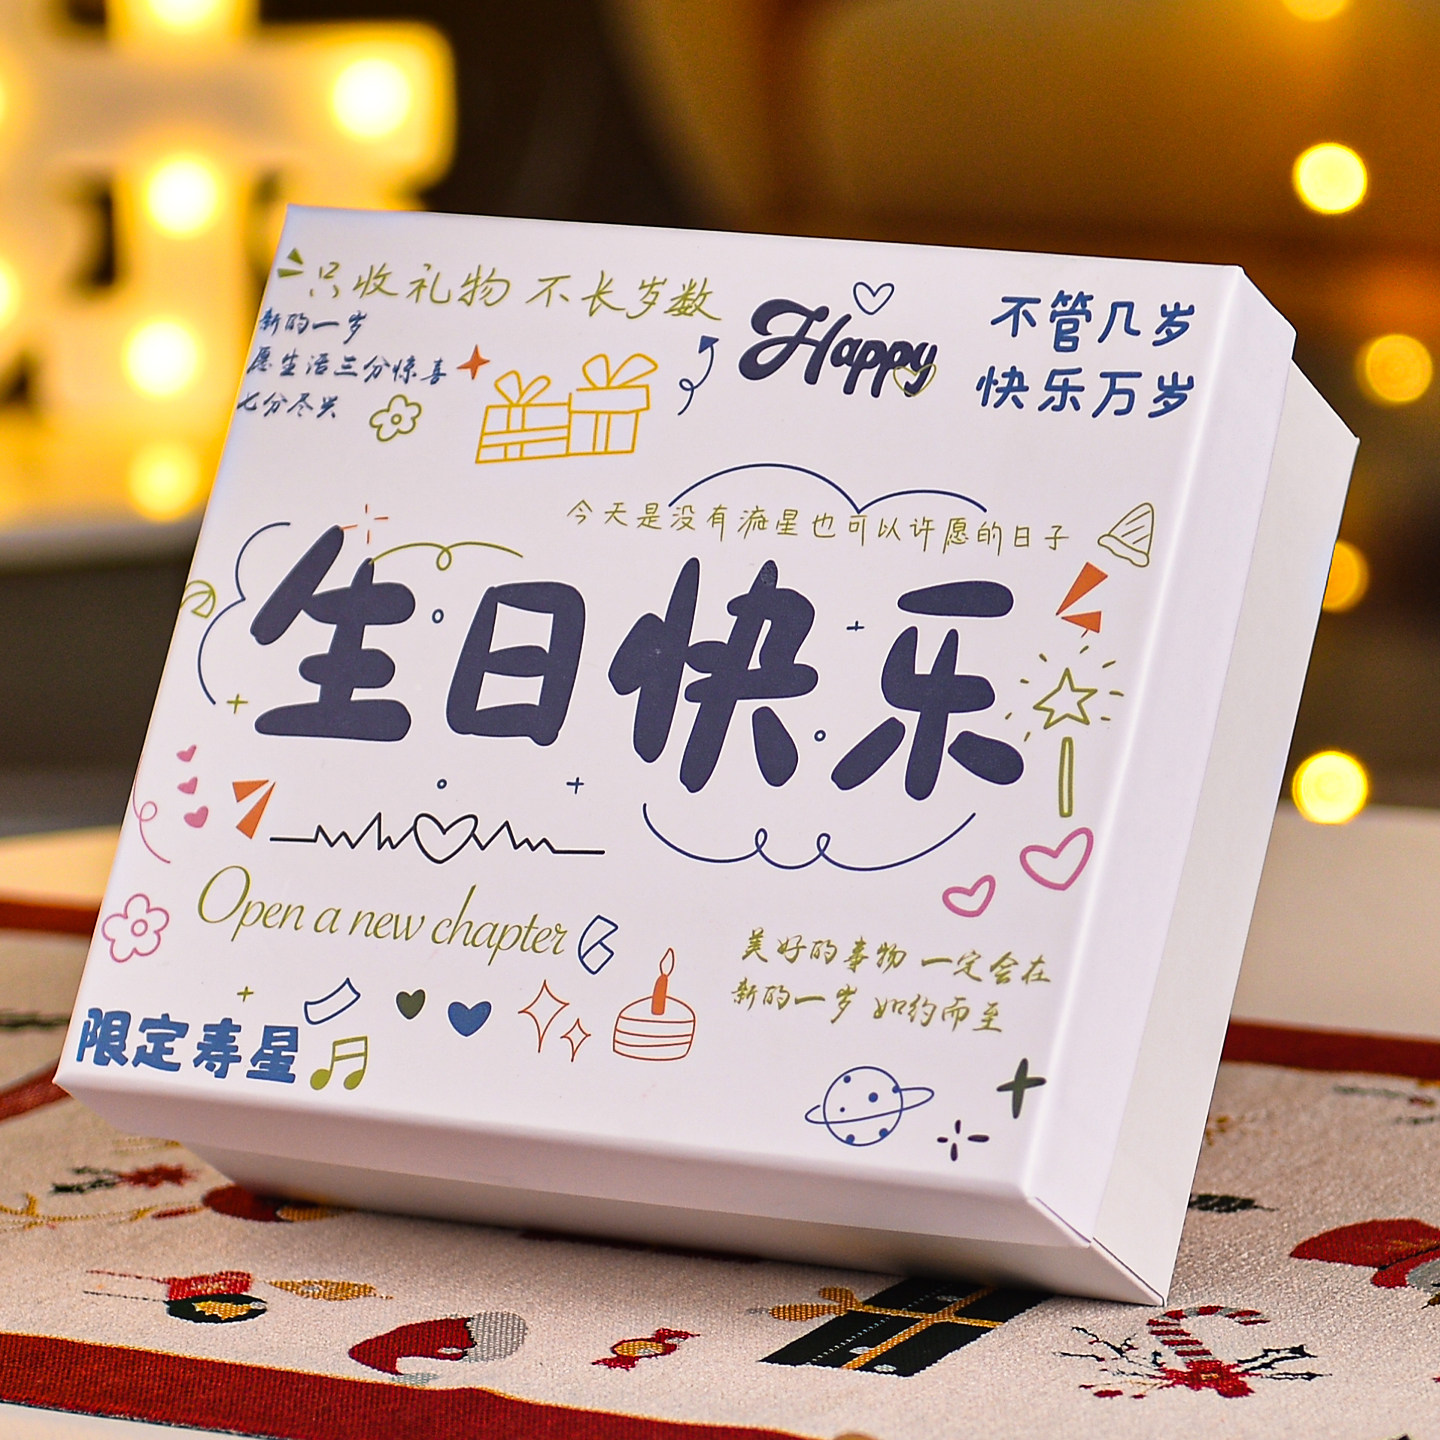 只收礼物 不长岁数
新的一岁
愿生活三分惊喜
七分尽兴
Happy
不管几岁
快乐万岁
今天是没有流星也可以许愿的日子
生日快乐
Open a new chapter
美好的事物 一定会在
新的一岁 如约而至
限定寿星